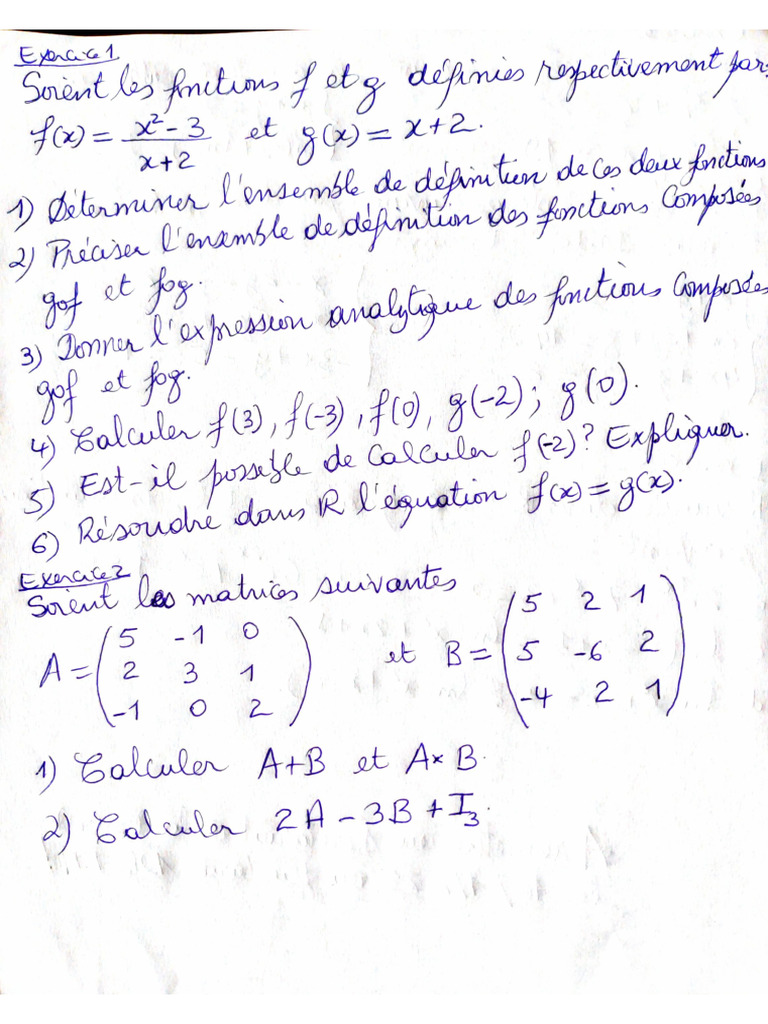 Exercice 1
Soient les fonctions f et g définies respectivement par:
f(x) = (x² - 3)/(x + 2) et g(x) = x + 2.
1) Déterminer l'ensemble de définition de ces deux fonctions
2) Préciser l'ensemble de définition des fonctions composées
gof et fog.
3) Donner l'expression analytique des fonctions composées
gof et fog.
4) Calculer f(3), f(-3), f(0), g(-2); g(0).
5) Est-il possible de calculer f(-2)? Expliquer.
6) Résoudre dans R l'équation f(x) = g(x).
Exercice 2
Soient les matrices suivantes
A = (5 -1 0
2 3 1
-1 0 2) et B = (5 2 1
5 -6 2
-4 2 1)
1) Calculer A+B et A×B.
2) Calculer 2A - 3B + I₃.